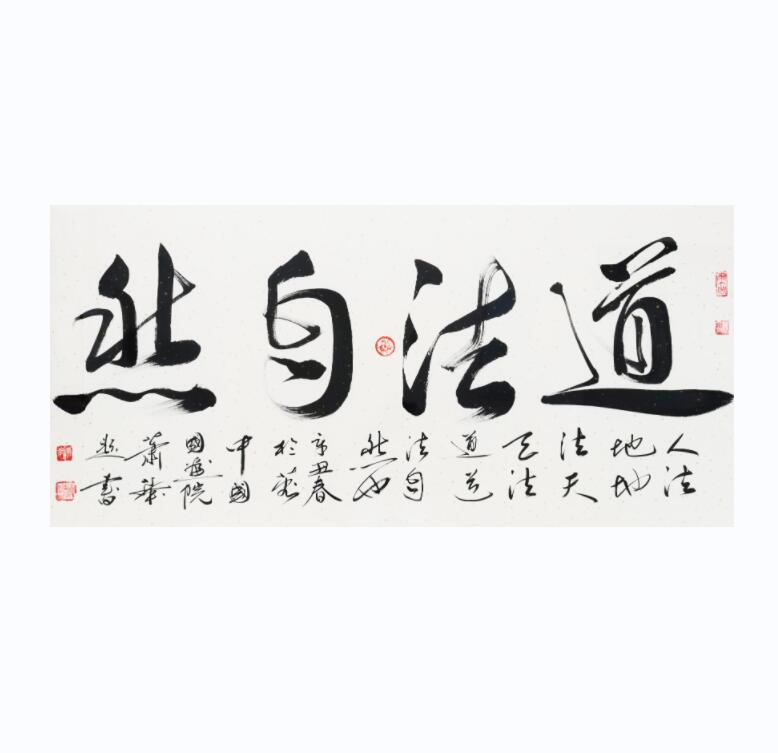 道法自然
人法
地地
法天
天法
道道
法自
然
辛丑春
於
中國
國畫院
蕭
書